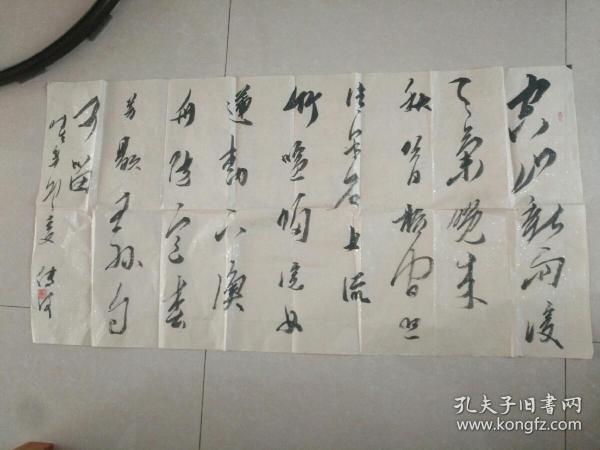 空山新雨後
天氣晚来
秋明月松间照
清泉石上流
竹喧归浣女
莲動下渔
舟随意春
芳歇王孙自
可留
孔夫子旧书网
www.kongfz.com